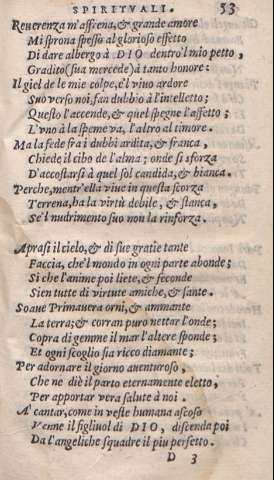 SPIRITVALI. 53
Reuerenza m'affrena, & grande amore
Mi sprona spesso al glorioso effetto
Di dare albergo à DIO dentro'l mio petto,
Gradito (sua mercede) à tanto honore:
Il giel de le mie colpe, è'l viuo ardore
Suo verso noi, fan dubbio à l'intelletto;
Questo l'accende, & quel spegne l'affetto;
L'vno à la speme va, l'altro al timore.
Ma la fede fra i dubbi ardita, & franca,
Chiede il cibo de l'alma; onde si sforza
D'accostarsi à quel sol candida, & bianca.
Perche, mentr'ella viue in questa scorza
Terrena, ha la virtù debile, & stanca,
Se'l nudrimento suo non la rinforza.
Aprasi il cielo, & di sue gratie tante
Faccia, che'l mondo in ogni parte abonde;
Si che l'anime poi liete, & feconde
Sien tutte di virtute amiche, & sante.
Soaue Primauera orni, & ammante
La terra; & corran puro nettar l'onde;
Copra di gemme il mar l'altere sponde;
Et ogni scoglio sia ricco diamante;
Per adornare il giorno auenturoso,
Che ne diè il parto eternamente eletto,
Per apportar vera salute à noi.
A' cantar, come in veste humana ascoso
Venne il figliuol di DIO, discenda poi
Da l'angeliche squadre il piu perfetto.
D 3